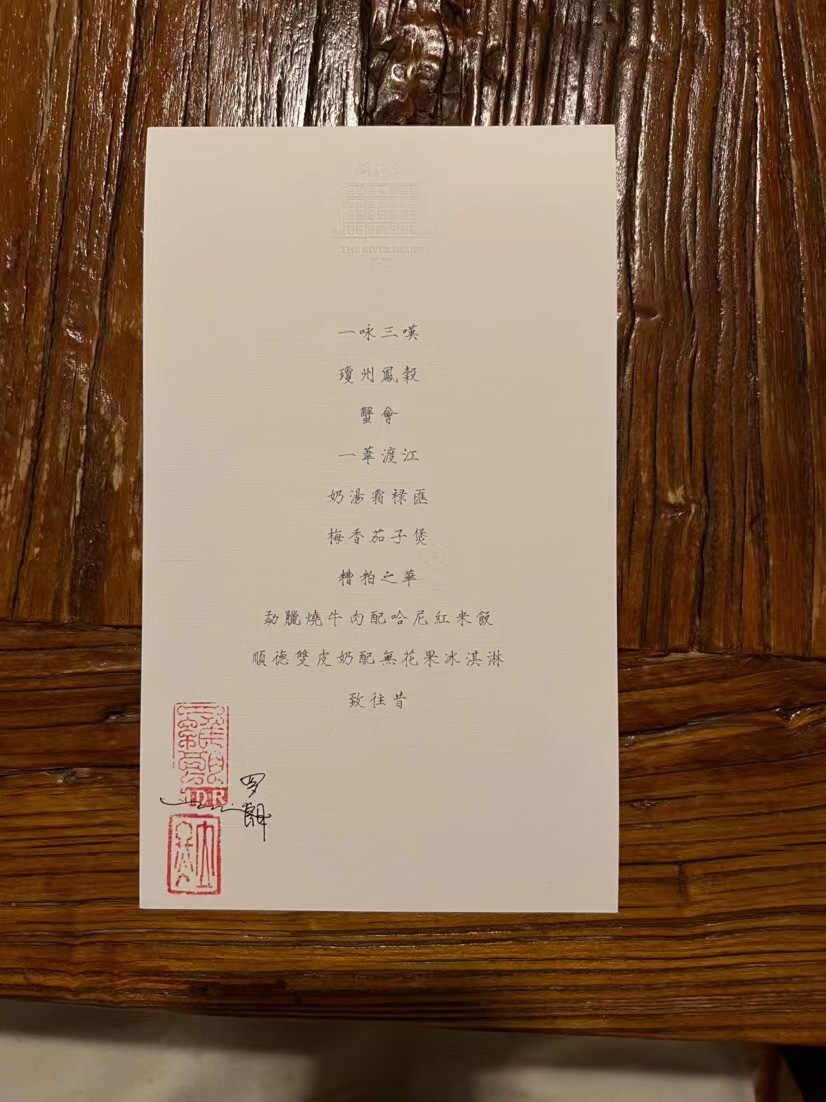 THE RIVER HOUSE
一咏三嘆
瓊州鳳穀
蟹會
一葦渡江
奶湯霜祿匯
梅香茄子煲
糟粕之華
勐臘燒牛肉配哈尼紅米飯
順德雙皮奶配無花果冰淇淋
致往昔